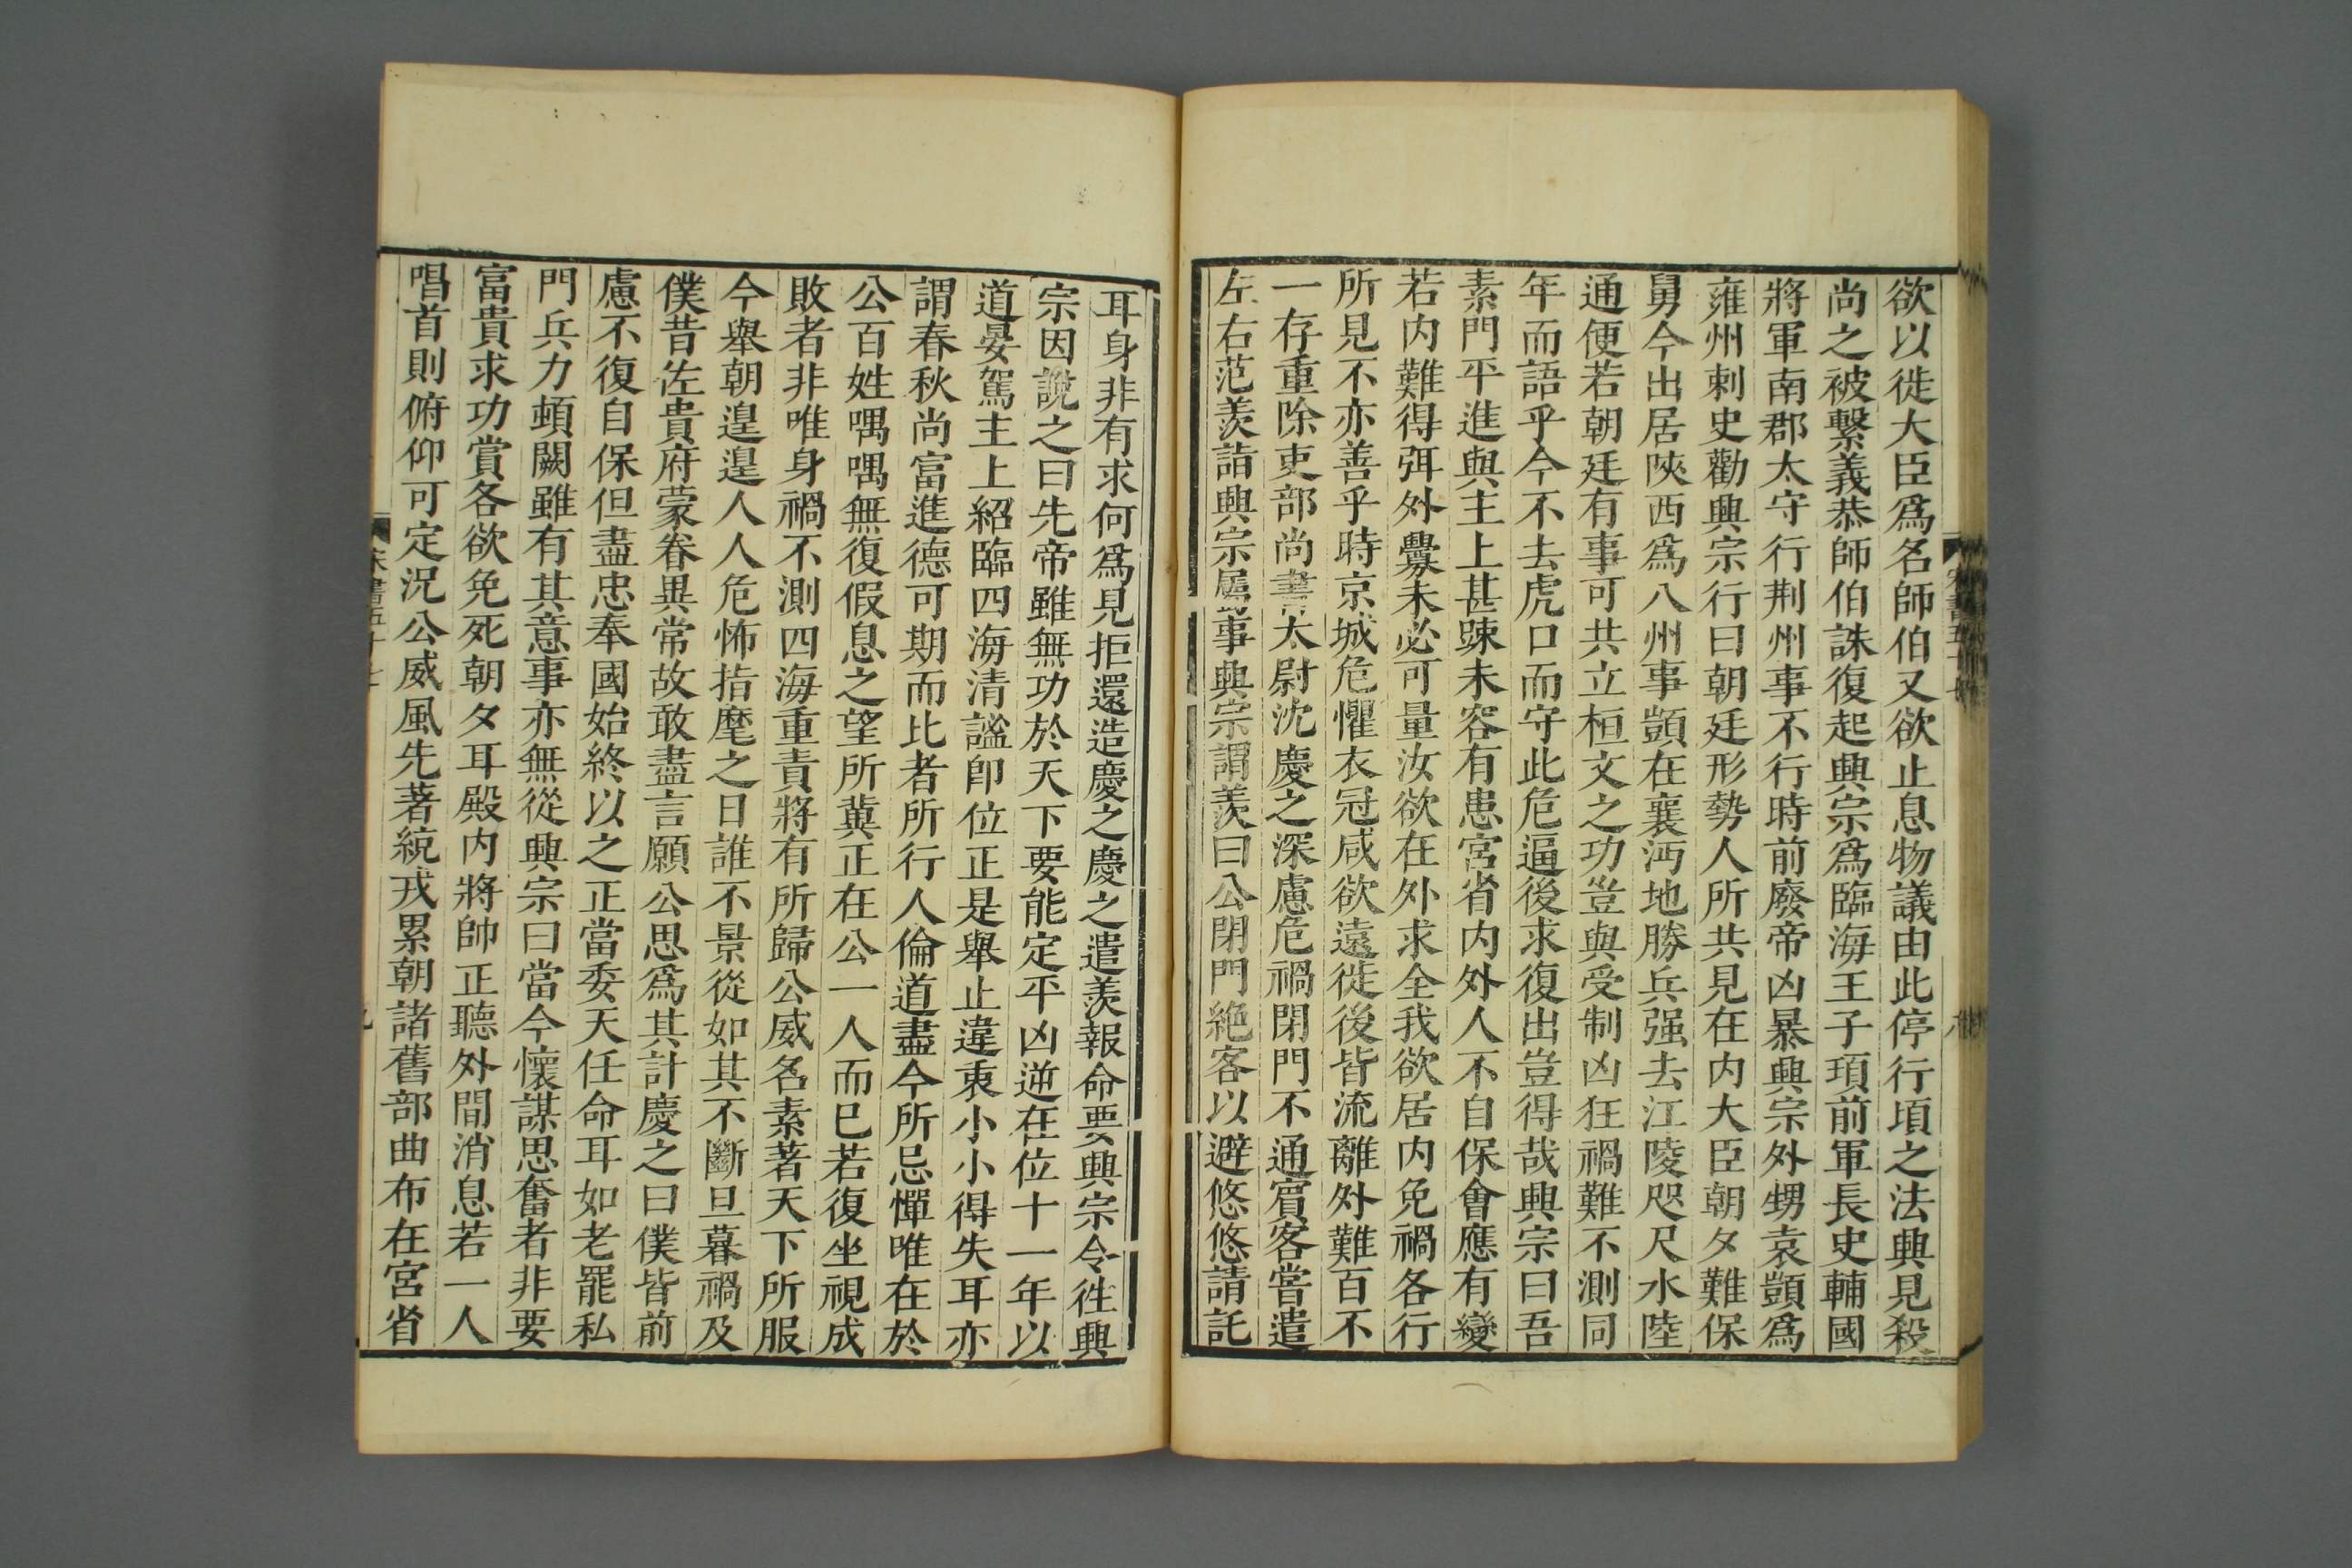 欲以徙大臣爲名師伯又欲止息物議由此停行頃之法興見殺
尚之被繫義恭師伯誅復起興宗爲臨海王子頊前軍長史輔國
將軍南郡太守行荆州事不行時前廢帝凶暴興宗外甥袁顗爲
雍州刺史勸興宗行曰朝廷形勢人所共見在内大臣朝夕難保
舅今出居陜西爲八州事顗在襄沔地勝兵强去江陵咫尺水陸
通便若朝廷有事可共立桓文之功豈與受制凶狂禍難不測同
年而語乎今不去虎口而守此危逼後求復出豈得哉興宗曰吾
素門平進與主上甚踈未容有患宮省内外人不自保會應有變
若内難得弭外釁未必可量汝欲在外求全我欲居内免禍各行
所見不亦善乎時京城危懼衣冠咸欲遠徙後皆流離外難百不
一存重除吏部尚書太尉沈慶之深慮危禍閉門不通賓客嘗遣
左右范羨詣興宗屬事興宗謂羨曰公閉門絶客以避悠悠請託
耳身非有求何爲見拒還造慶之慶之遣羨報命要興宗令徃興
宗因說之曰先帝雖無功於天下要能定平凶逆在位十一年以
道晏駕主上紹臨四海清謐卽位正是舉止違衷小小得失耳亦
謂春秋尚富進德可期而比者所行人倫道盡今所忌憚唯在於
公百姓喁喁無復假息之望所冀正在公一人而已若復坐視成
敗者非唯身禍不測四海重責將有所歸公威名素著天下所服
今舉朝遑遑人人危怖指麾之日誰不景從如其不斷旦暮禍及
僕昔佐貴府蒙眷異常故敢盡言願公思爲其計慶之曰僕皆前
慮不復自保但盡忠奉國始終以之正當委天任命耳如老罷私
門兵力頓闕雖有其意事亦無從興宗曰當今懷謀思奮者非要
富貴求功賞各欲免死朝夕耳殿内將帥正聽外間消息若一人
唱首則俯仰可定況公威風先著統戎累朝諸舊部曲布在宮省
宋書五十七